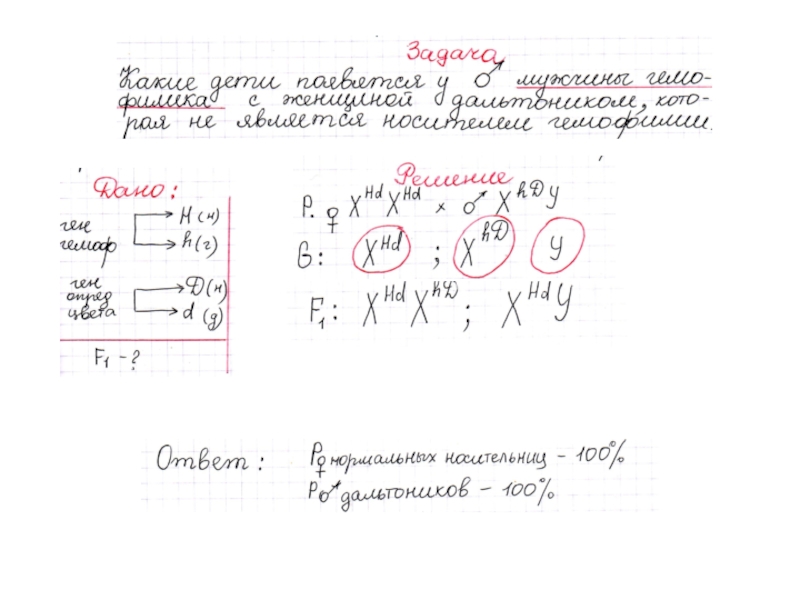 Задача
Какие дети появятся у ♂ мужчины гемо-
филика с женщиной дальтоником, кото-
рая не является носителем гемофилии.
Дано:
ген гемоф
H (н)
h (г)
ген опред цвета
D (н)
d (д)
F₁ - ?
Решение
P. ♀ X^Hd X^Hd × ♂ X^hD y
G: X^Hd ; X^hD y
F₁: X^Hd X^hD ; X^Hd y
Ответ: P♀ нормальных носительниц - 100%
P♂ дальтоников - 100%